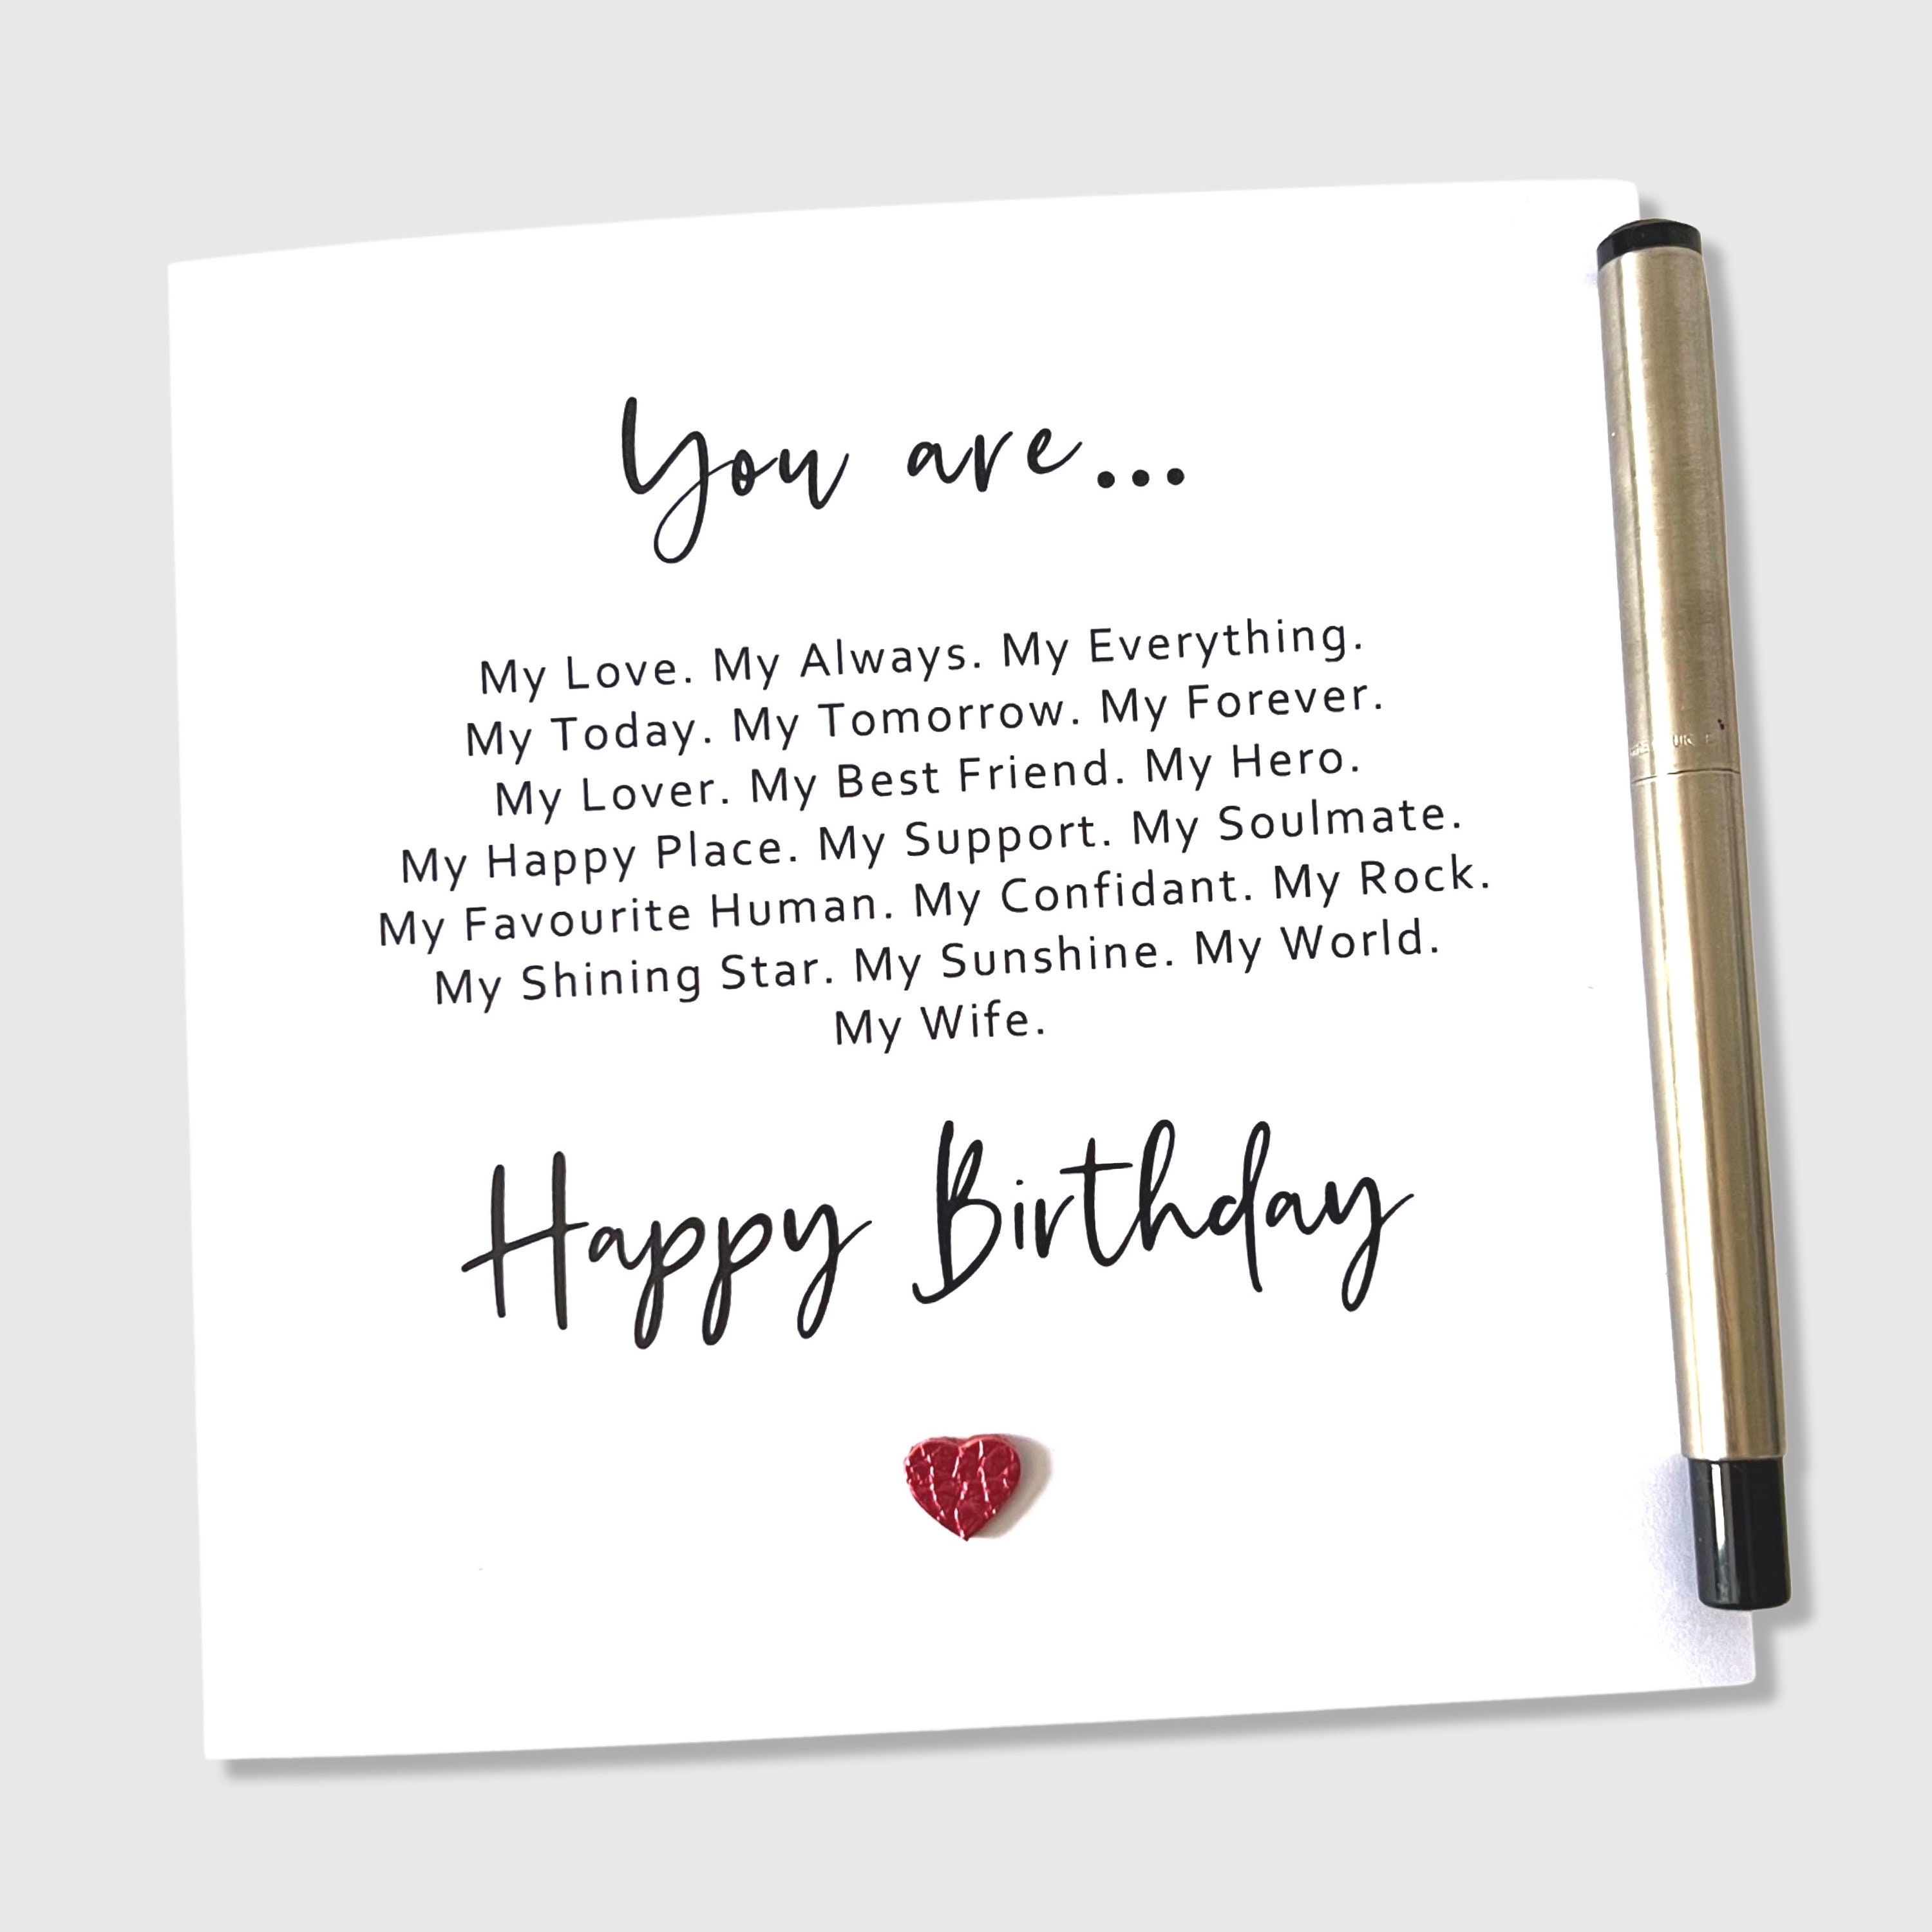 You are...
My Love. My Always. My Everything.
My Today. My Tomorrow. My Forever.
My Lover. My Best Friend. My Hero.
My Happy Place. My Support. My Soulmate.
My Favourite Human. My Confidant. My Rock.
My Shining Star. My Sunshine. My World.
My Wife.
Happy Birthday